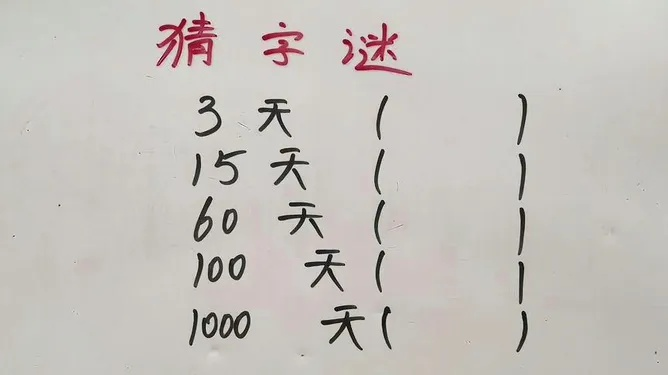 猜字谜
3天( )
15天( )
60天( )
100天( )
1000天( )